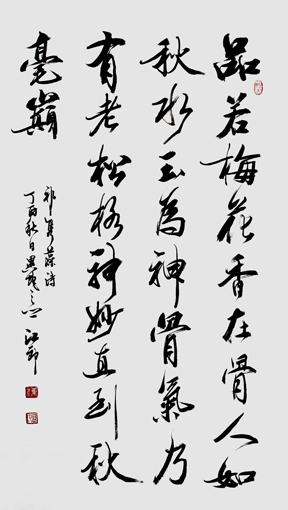 品若梅花香在骨人如
秋水玉為神骨氣乃
有老松格神妙直到秋
毫巔
祁隽藻詩
丁酉秋日